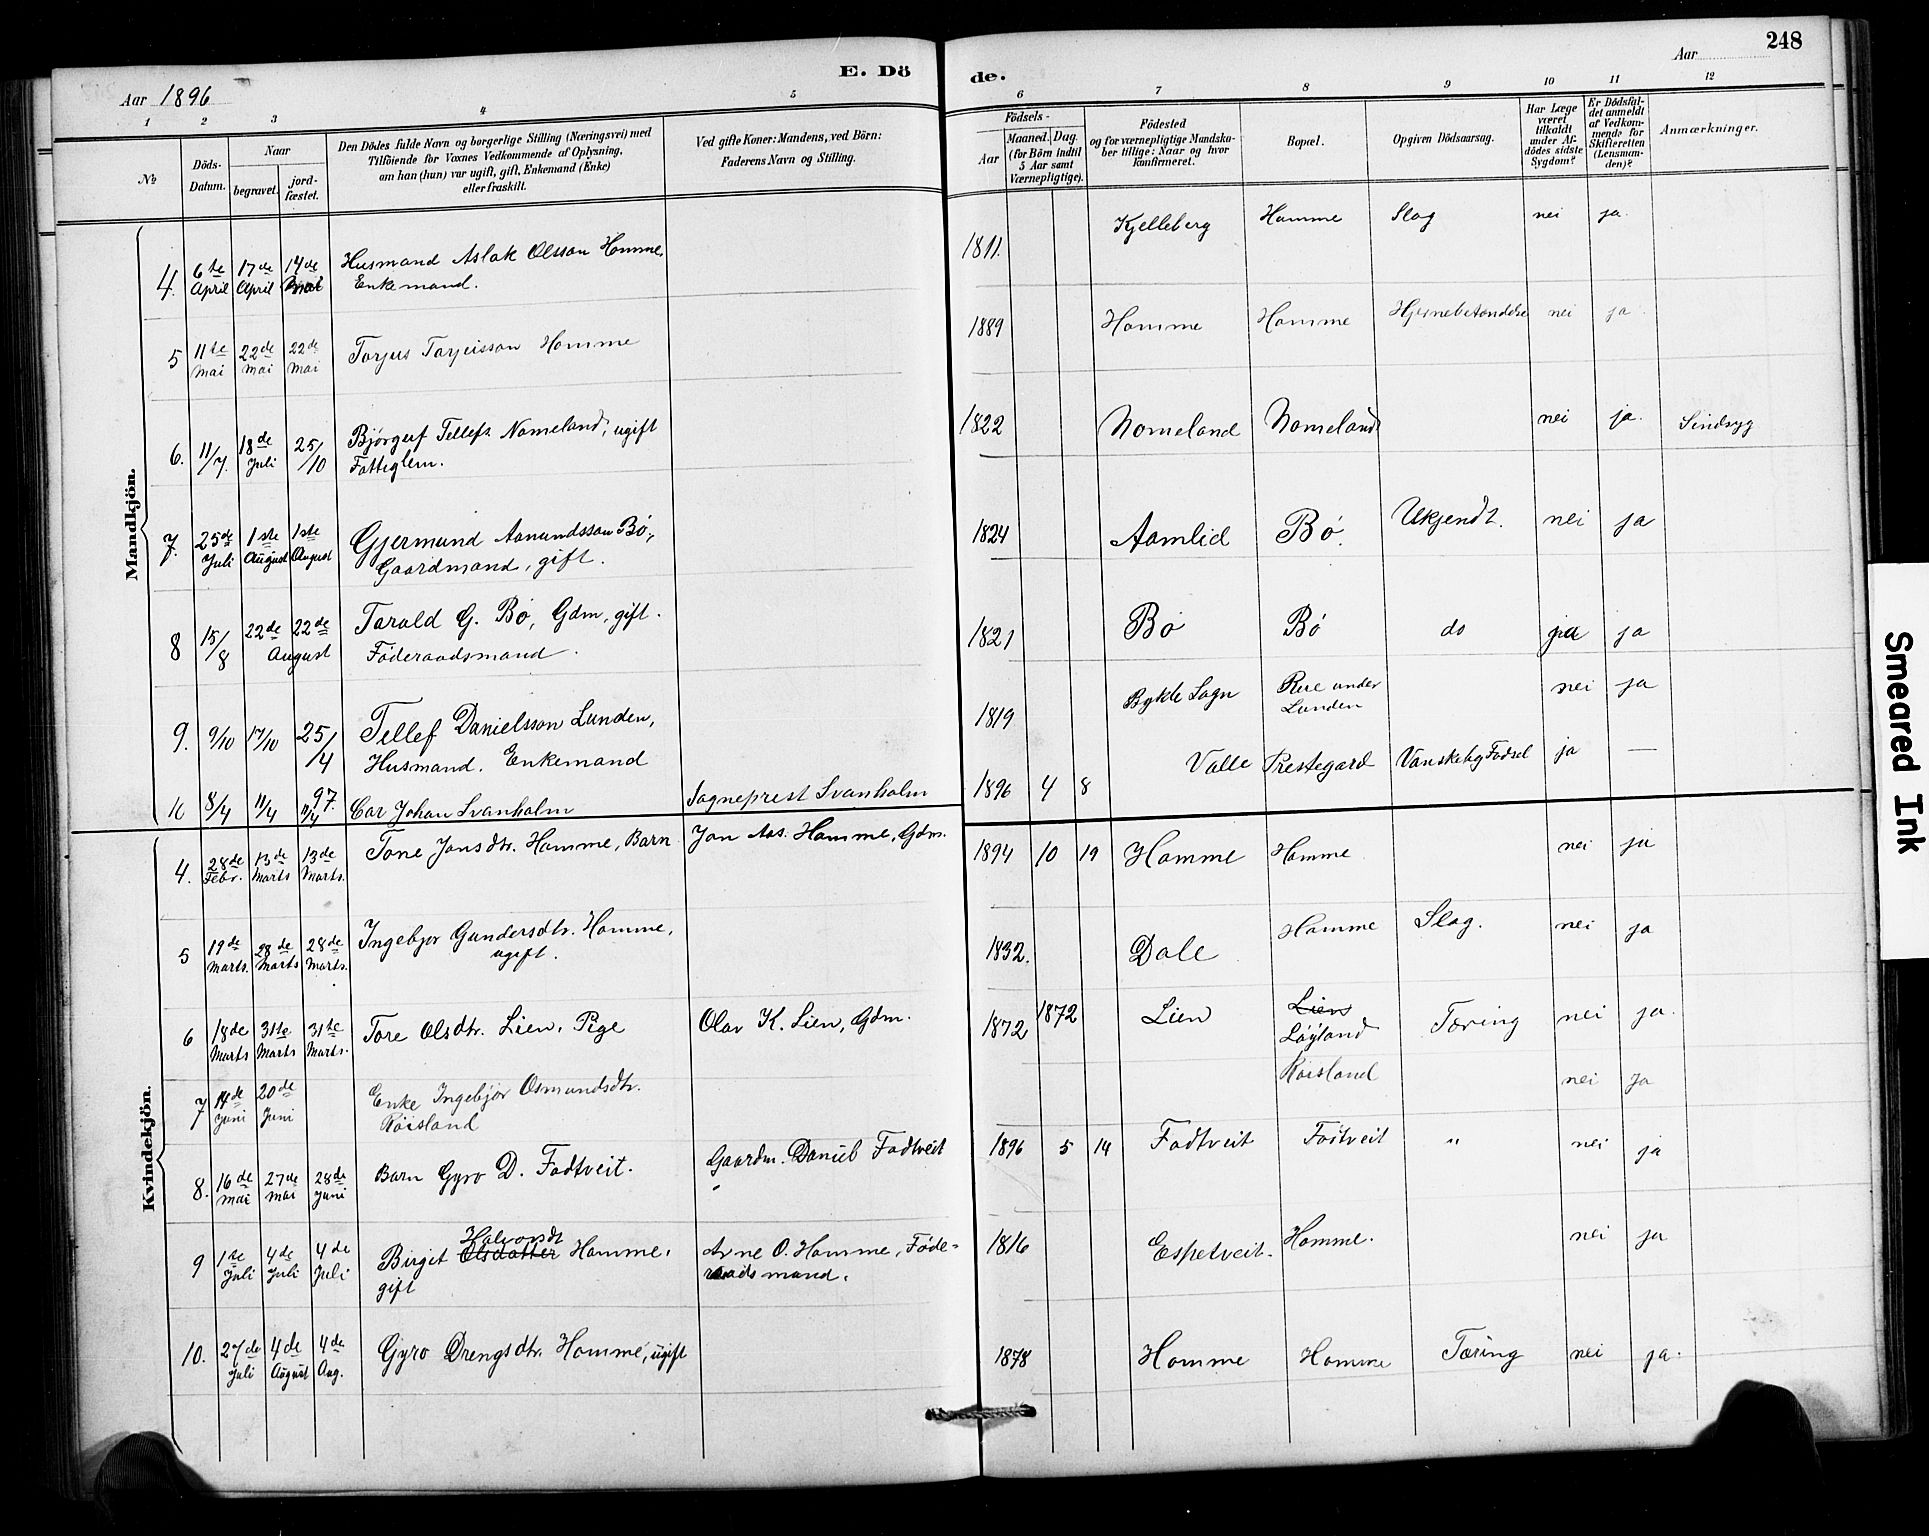 248
E. Dö de.
Aar 1896
Aar
1 2 3 4 5 6 7 8 9 10 11 12
№
Döds-
Datum.
Naar
begravet.
jord-
fæstet.
Den Dödes fulde Navn og borgerlige Stilling (Næringsvei) med
Tilföiende for Voxnes Vedkommende af Oplysning,
om han (hun) var ugift, gift, Enkemand (Enke)
eller fraskilt.
Ved gifte Koner: Mandens, ved Börn:
Faderens Navn og Stilling.
Födsels-
Aar
Maaned. Dag.
(for Börn indtil
5 Aar samt
Værnepligtige).
Födested
og for værnepligtige Mandska-
ber tillige: Naar og hvor
konfirmeret.
Bopæl.
Opgiven Dödsaarsag.
Har Læge
været
tilkaldt
under Af-
dödes sidste
Sygdom?
Er Dödsfal-
det anmeldt
af Vedkom-
mende for
Skifteretten
(Lensman-
den)?
Anmærkninger.
Mandkjön.
4. 6te April 17de April 14de Husmand Aslak Olsson Homme, Enkemand. 1811. Kjelleberg Homme Slag nei ja.
5 11te Mai 22de Mai 22de Mai Torjus Torjeisson Homme 1889 Homme Homme Hjernebetændelse nei ja
6. 11/7. 18de Juli 25/10 Bjørguf Tellefs. Nomeland, ugift Fatteglem. 1822 Nomeland Nomeland nei ja. Sindsyg
7. 25de Juli 1ste August 1ste August Gjermund Aanundsson Bö, Gaardmand, gift. 1824 Aamlid Bö. Ukjendt. nei ja
8 15/8 22de 22de August Torald G. Bö, Gdm, gift. Föderaadsmand. 1821 Bö Bö do ja ja
9. 9/10 17/10 25/4 97. Tellef Danielsson Lunden, Husmand. Enkemand 1819 Bykle Sogn Rue under Lunden nei ja
10 8/4 11/4 11/4 Car Johan Svanholm Sogneprest Svanholm 1896 4 8 Valle Prestegard Vanskelig Födsel ja —
Kvindekjön.
4. 28de Febr. 13de Marts 13de Marts. Tone Jonsdtr. Homme, Barn Jon Aas. Homme, Gdm. 1894 10 19 Homme Homme nei ja
5 19de Marts. 28de Marts 28de Marts. Ingebjor Gundersdtr. Homme, ugift. 1832. Dale Homme Slag. nei ja
6 18de Marts 31te Marts 31te Marts. Tore Olsdtr. Lien, Pige Olav K. Lien, Gdm. 1872 1872 Lien Lien Löyland Tæring nei ja.
7 14de Juni 20de Juni Enke Ingebjor Osmundsdtr. Röisland Röisland nei Ja
8. 16de Mai 27de Mai 28de Juni Barn Gyro D. Fodtveit. Gaardm. Daniel Fodtveit 1896 5 14 Fodtveit Fodtveit " nei ja
9 1te Juli 4de Juli 4de Juli Birgit Olsdatter Halvorsdt Homme, gift Arne O. Homme, Föde- raadsmand. 1816 Espetveit. Homme. nei ja
10. 27de Juli 4de August 4de Aug. Gyro Drengsdtr. Homme, ugift 1878 Homme Homme Tæring nei ja.
Smeared Ink